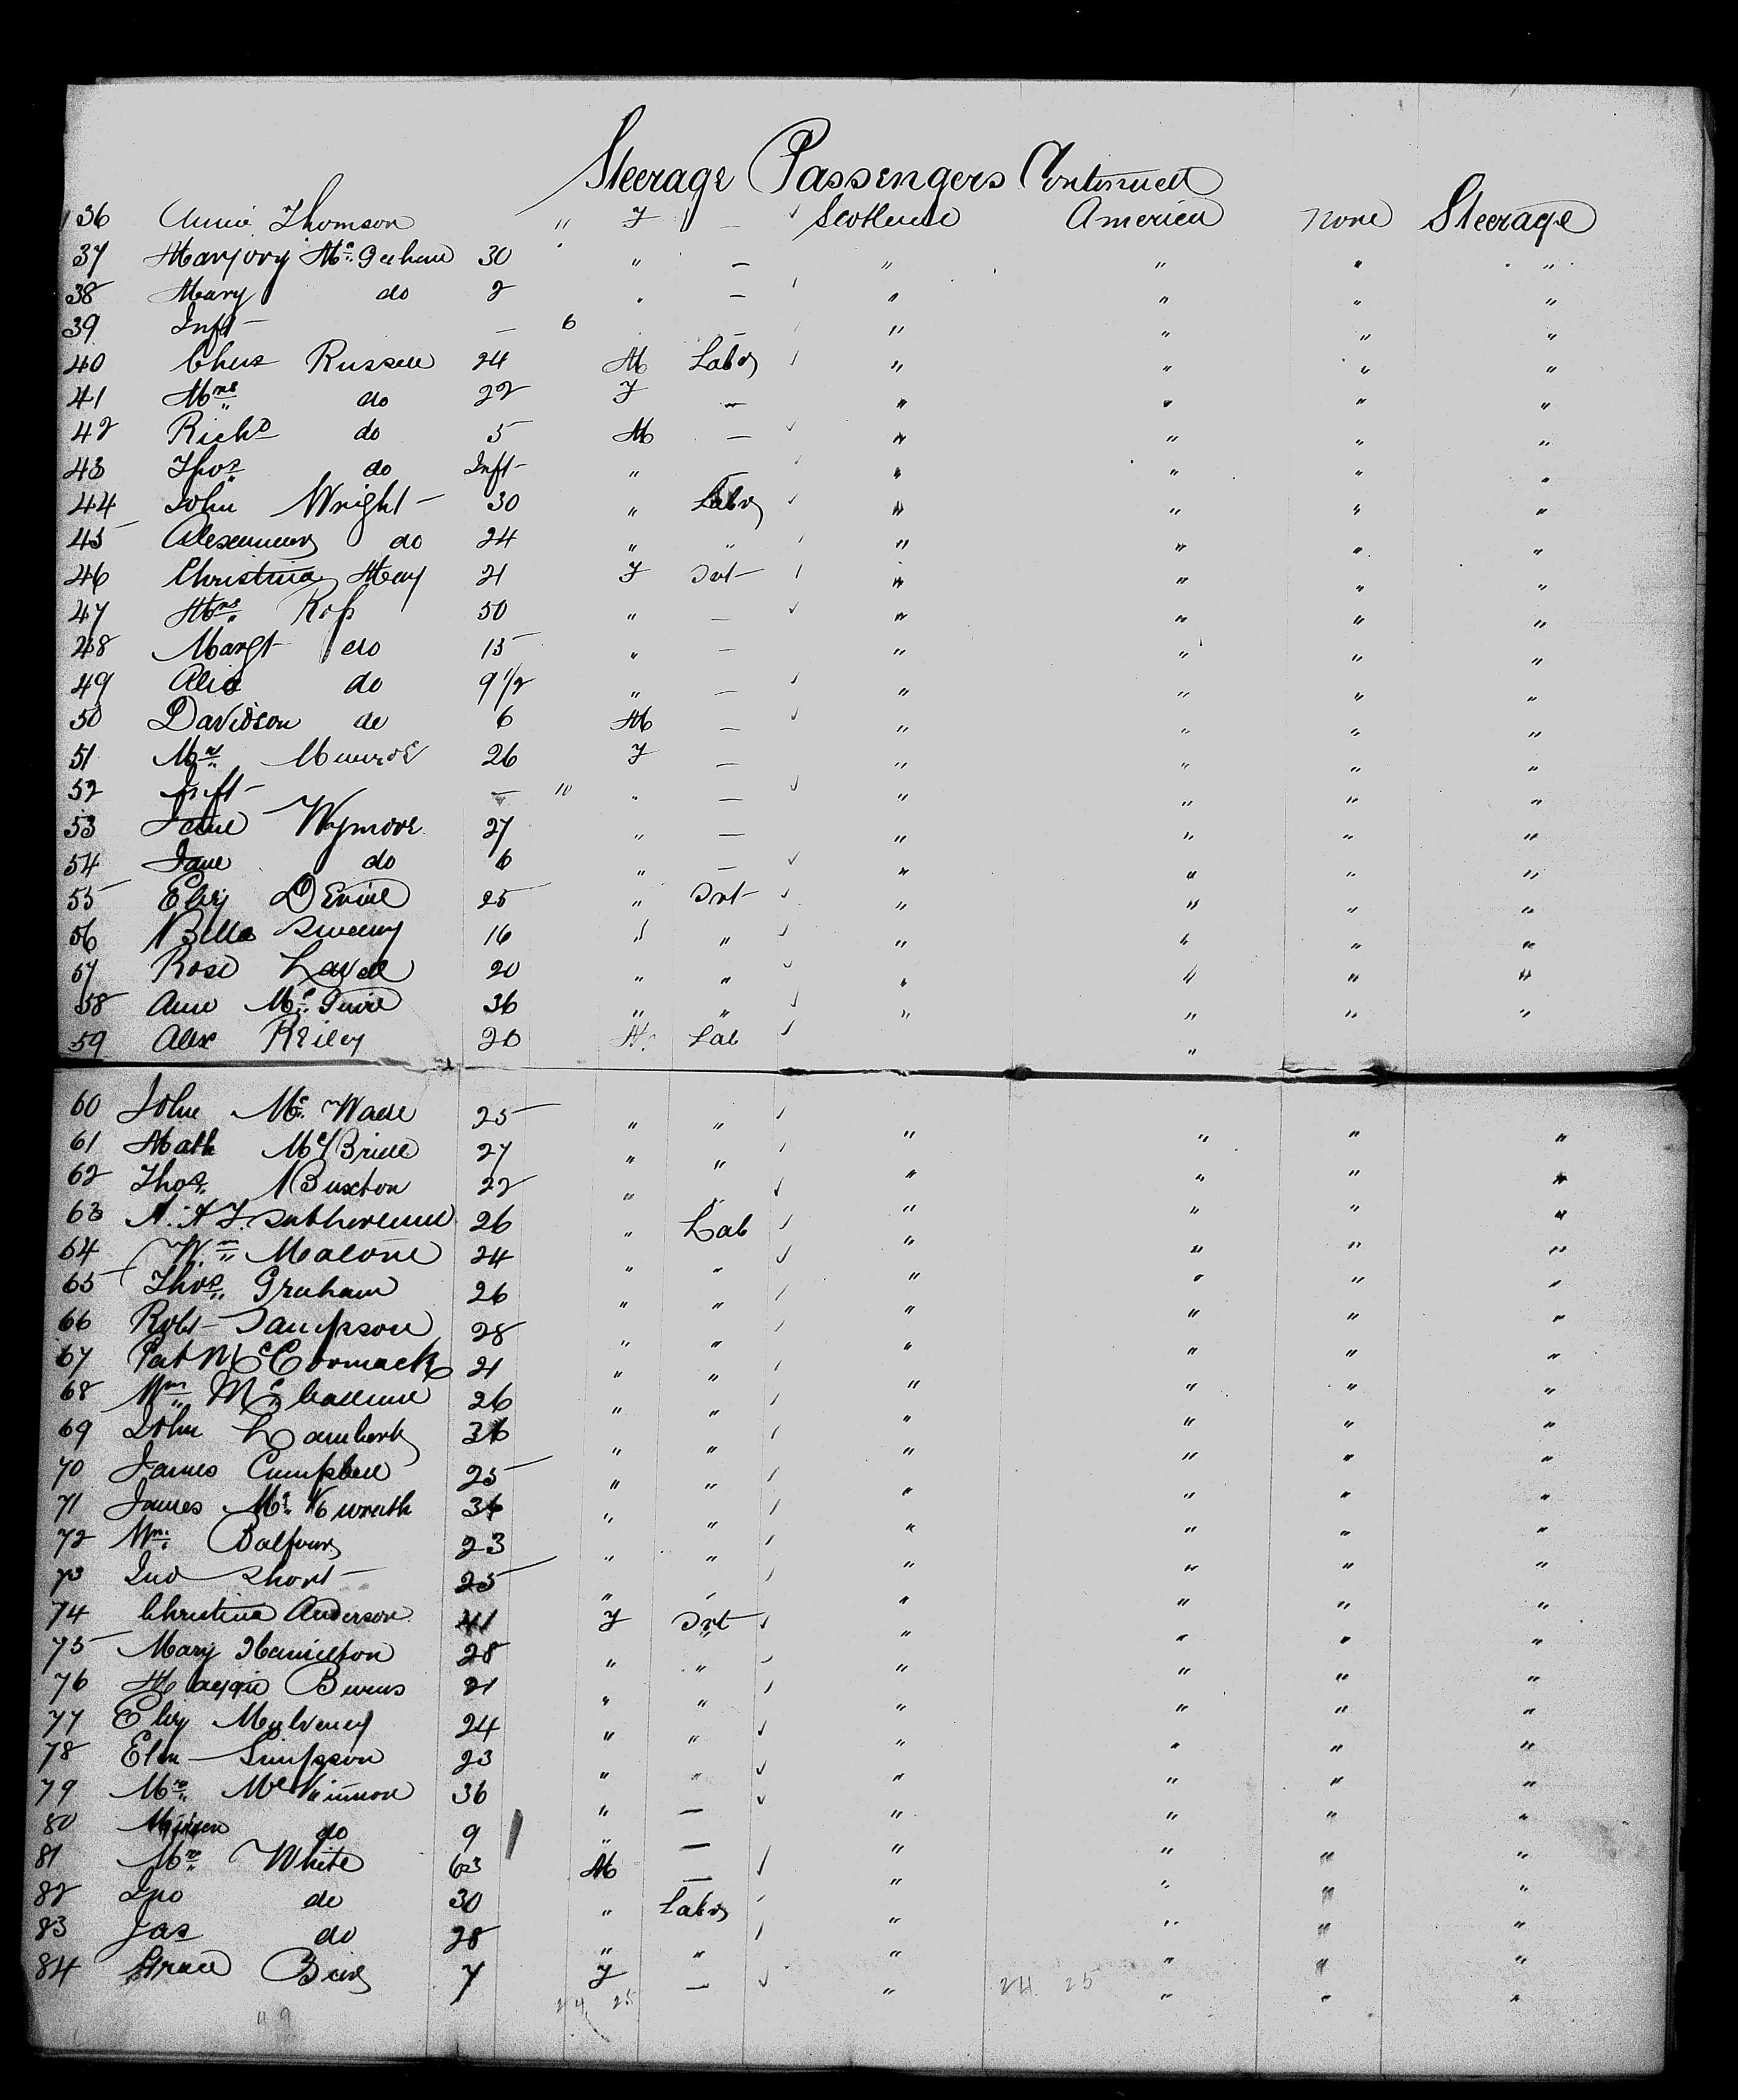 Steerage Passengers Continued
136 Annie Thomson " F — Scotland America none Steerage
37 Marjory Mc Gechan 30 " — " " " "
38 Mary do 2 " — " " " "
39 Inft — 6 — " " " "
40 Chas Russell 24 M Labr " " " "
41 Mrs do 22 F — " " " "
42 Richd do 5 M — " " " "
43 Thos do Inft " — " " " "
44 John Wright 30 " Labr " " " "
45 Alexander do 24 " " " " " "
46 Christina May 21 F Svt " " " "
47 Mrs Ross 50 " — " " " "
48 Margt do 15 " — " " " "
49 do 9 1/2 " — " " " "
50 Davidson do 6 M — " " " "
51 Mrs Munroe 26 F — " " " "
52 Inft — 10 " — " " " "
53 Jane Wymore 27 " — " " " "
54 Jane do 6 " — " " " "
55 Eliz Devine 25 " Svt " " " "
56 Bella Sweeny 16 " " " " " "
57 Rose 20 " " " " " "
58 Ann Mc Guire 36 " " " " " "
59 Alex Reiley 20 M. Lab "
60 John Mc Wade 25 " " " " " "
61 Math McBride 27 " " " " " "
62 Thos Buxton 22 " " " " " "
63 Sutherland 26 " Lab " " " "
64 Wm Malone 24 " " " " " "
65 Thos Graham 26 " " " " " "
66 Robt Sampson 28 " " " " " "
67 Pat McCormack 21 " " " " " "
68 Wm Mc Callum 26 " " " " " "
69 John Lambert 36 " " " " " "
70 James Campbell 25 " " " " " "
71 James Mc 36 " " " " " "
72 Wm Balfour 23 " " " " " "
73 Jno Short 25 " " " " " "
74 Christina Anderson 41 F Svt " " " "
75 Mary Hamilton 28 " " " " " "
76 Maggie Burns 21 " " " " " "
77 Eliz Mulveney 24 " " " " " "
78 Elen Simpson 23 " " " " " "
79 Mrs McKinnon 36 " — " " " "
80 do 9 " — " " " "
81 Mrs White 63 M — " " " "
82 Jno do 30 " Labr " " " "
83 Jas do 28 " " " " " "
84 Grace 7 F — " " " "
24 25
24 25